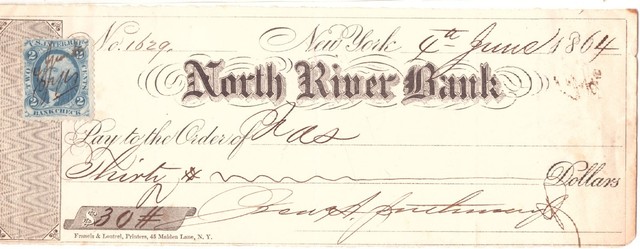 No. 1629. New York 4th June 1864
U.S. INTER. REV.
2 2
TWO CENTS
2 2
BANK CHECK
North River Bank
Pay to the Order of
Thirty Dollars
$30#
Francis & Loutrel, Printers, 45 Maiden Lane, N. Y.